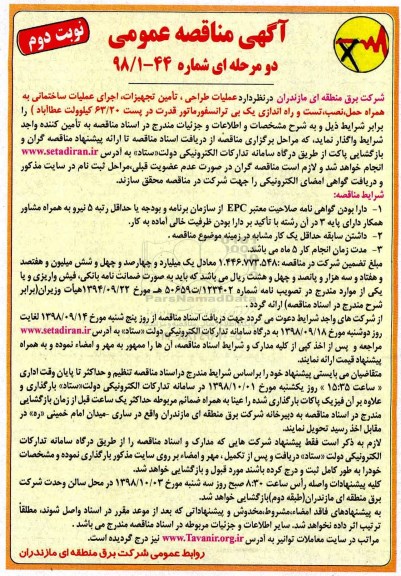 نوبت دوم
آگهی مناقصه عمومی
دو مرحله ای شماره ۴۴-۹۸/۱
شرکت برق منطقه ای مازندران درنظردارد عملیات طراحی ، تأمین تجهیزات، اجرای عملیات ساختمانی به
همراه حمل،نصب،تست و راه اندازی یک بی ترانسفورماتور قدرت در پست ۶۳/۲۰ کیلوولت عطاآباد ) را
برابر شرایط ذیل و به شرح مشخصات و اطلاعات و جزئیات مندرج در اسناد مناقصه به تأمین کننده واجد
شرایط واگذار نماید، که مراحل برگزاری مناقصه از دریافت اسناد مناقصه تا ارائه پیشنهاد مناقصه گران و
بازگشایی پاکت از طریق درگاه سامانه تدارکات الکترونیکی دولت«ستاد» به آدرس www.setadiran.ir
انجام خواهد شد و لازم است مناقصه گران در صورت عدم عضویت قبلی،مراحل ثبت نام در سایت مذکور
و دریافت گواهی امضای الکترونیکی را جهت شرکت در مناقصه محقق سازند.
شرایط مناقصه:
۱- دارا بودن گواهی نامه صلاحیت معتبر EPC از سازمان برنامه و بودجه یا حداقل رتبه ۵ نیرو به همراه مشاور
همکار دارای پایه ۳ در آن رشته با تأکید بر دارا بودن ظرفیت خالی آماده به کار.
۲- داشتن سابقه حداقل یک کار مشابه در زمینه موضوع مناقصه .
۳- مدت زمان انجام کار ۵ ماه می باشد.
مبلغ تضمین شرکت در مناقصه ۱.۴۴۶.۷۷۳.۵۴۸ معادل یک میلیارد و چهارصد و چهل و شش میلیون و هفتصد
و هفتاد و سه هزار و پانصد و چهل و هشت ریال می باشد که باید به صورت ضمانت نامه بانکی، فیش واریزی و یا
یکی از موارد مندرج در تصویب نامه شماره ۱۲۳۴۰۲/ت۵۰۶۵۹هـ مورخ ۱۳۹۴/۰۹/۲۲هیأت وزیران(برابر
شرح مندرج در اسناد مناقصه) ارائه گردد .
از شرکت های واجد شرایط دعوت می گردد جهت دریافت اسناد مناقصه از روز پنج شنبه مورخ ۱۳۹۸/۰۹/۱۴ لغایت
روز دوشنبه مورخ ۱۳۹۸/۰۹/۱۸ به درگاه سامانه تدارکات الکترونیکی دولت«ستاد» به آدرس www.setadiran.ir
مراجعه و پس از اخذ کپی از کلیه مدارک و شرایط اسناد مناقصه، آن ها را ممهور به مهر و امضاء نموده و به همراه
پیشنهاد قیمت ارائه نمایند.
متقاضیان می بایستی پیشنهاد خود را براساس شرایط مندرج دراسناد مناقصه تنظیم و حداکثر تا پایان وقت اداری
« ساعت ۱۵:۳۵ » روز یکشنبه مورخ ۱۳۹۸/۱۰/۰۱ در سامانه تدارکات الکترونیکی دولت«ستاد» بارگذاری و
علاوه بر آن فیزیک پاکات بارگذاری شده را عینا به همراه ضمائم مربوطه حداکثر یک ساعت قبل از زمان بازگشایی
مندرج در اسناد مناقصه به دبیرخانه شرکت برق منطقه ای مازندران واقع در ساری -میدان امام خمینی «ره» در
مقابل اخذ رسید تحویل نمایند.
لازم به ذکر است فقط پیشنهاد شرکت هایی که مدارک و اسناد مناقصه را از طریق درگاه سامانه تدارکات
الکترونیکی دولت «ستاد» دریافت و پس از تکمیل ، مهر و امضاء بر روی سایت مذکور بارگذاری نموده و مشخصات
خودرا به طور کامل ثبت و درج کرده باشند مورد قبول و بازگشایی خواهد شد.
کلیه پیشنهادات واصله رأس ساعت ۸:۳۰ صبح روز سه شنبه مورخ ۱۳۹۸/۱۰/۰۳ در محل سالن وحدت شرکت
برق منطقه ای مازندران(طبقه دوم)بازگشایی خواهد شد.
به پیشنهادهای فاقد امضاء،مشروط،مخدوش و پیشنهاداتی که بعد از موعد مقرر در اسناد واصل شوند، مطلقاً
ترتیب اثر داده نخواهد شد. سایر اطلاعات و جزئیات مربوطه در اسناد مناقصه مندرج می باشد .
مراتب در سایت معاملات توانیر به آدرس www.Tavanir.org.ir نیز درج گردیده است.
روابط عمومی شرکت برق منطقه ای مازندران